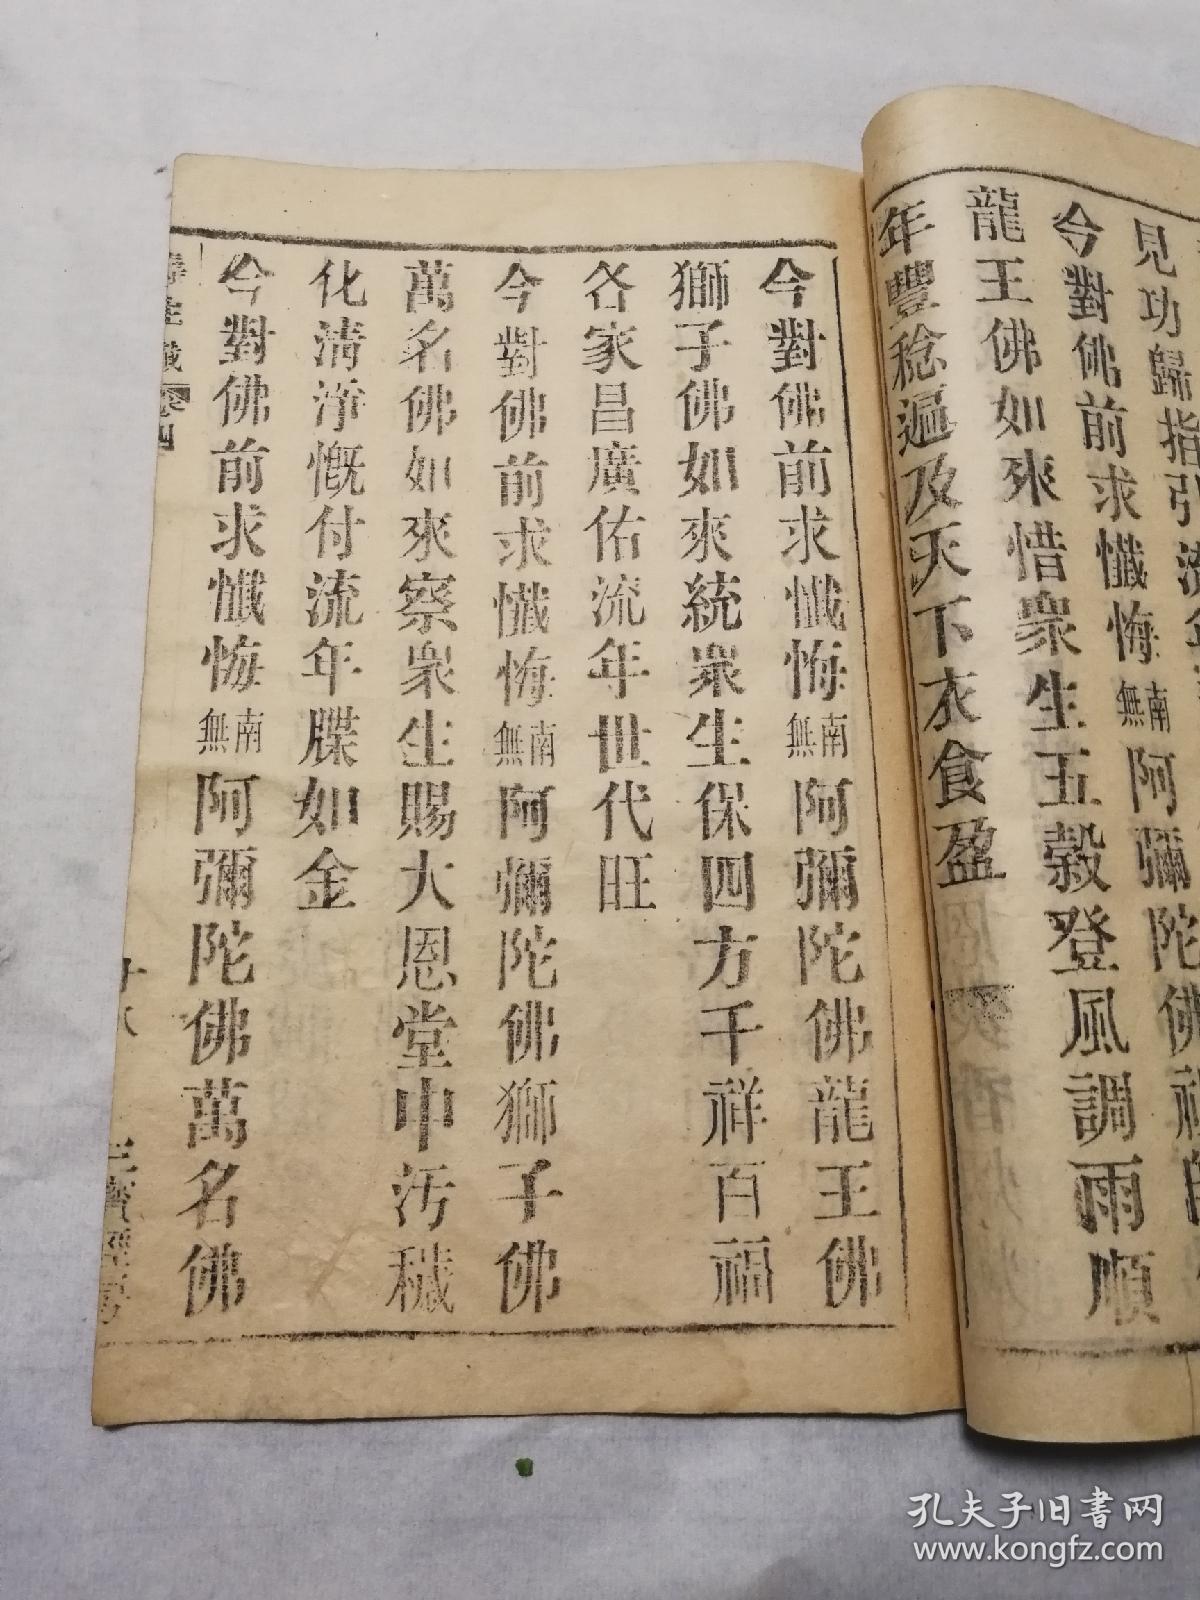 見功歸指引
今對佛前求懺悔南無阿彌陀佛祖師
龍王佛如來惜衆生五穀登風調雨順
年豐稔遍及天下衣食盈
今對佛前求懺悔南無阿彌陀佛龍王佛
獅子佛如來統衆生保四方千祥百福
各家昌廣佑流年世代旺
今對佛前求懺悔南無阿彌陀佛獅子佛
萬名佛如來察衆生賜大恩堂中汚穢
化清淨慨付流年牒如金
今對佛前求懺悔南無阿彌陀佛萬名佛
卷四
孔夫子旧书网
www.kongfz.com